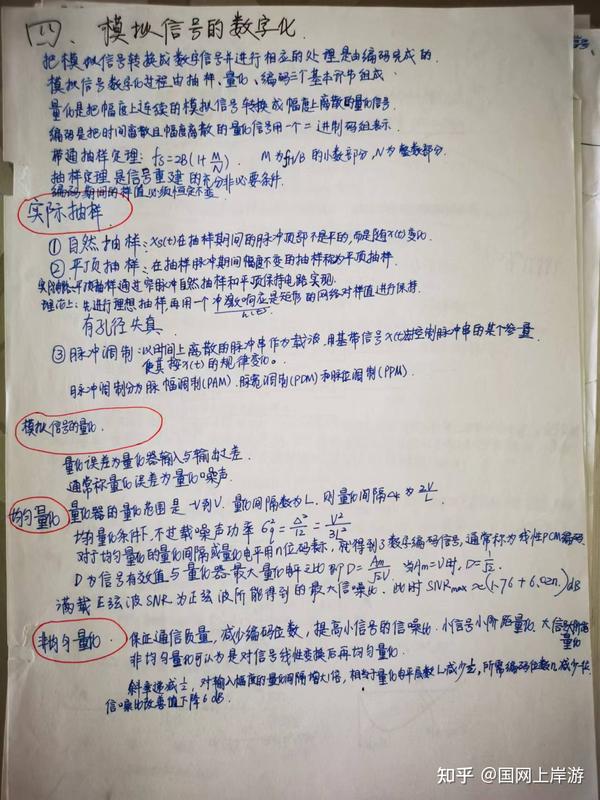 四、模拟信号的数字化
把模拟信号转换成数字信号并进行相应的处理是由编码完成的.
模拟信号数字化过程由抽样、量化、编码三个基本环节组成.
量化是把幅度上连续的模拟信号转换成幅度上离散的量化信号.
编码是把时间离散且幅度离散的量化信号用一个二进制码组表示.
带通抽样定理: fs=2B(1+M/N). M为fH/B的小数部分,N为整数部分.
抽样定理是信号重建的充分非必要条件.
编码期间的样值必须恒定不变
实际抽样.
①自然抽样: Xs(t)在抽样期间的脉冲顶部不是平的,而是随x(t)变化.
②平顶抽样: 在抽样脉冲期间幅度不变的抽样称为平顶抽样.
平顶抽样通过窄脉冲自然抽样和平顶保持电路实现.
理论上: 先进行理想抽样,再用一个冲激响应是矩形的网络对样值进行保持.
h(t)
有孔径失真
③脉冲调制: 以时间上离散的脉冲串作为载波,用基带信号x(t)去控制脉冲串的某个参量,
使其按x(t)的规律变化。
脉冲调制分为脉幅调制(PAM).脉宽调制(PDM)和脉位调制(PPM).
模拟信号的量化.
量化误差为量化器输入与输出之差.
通常称量化误差为量化噪声.
均匀量化
量化器的量化范围是-V到V.量化间隔数为L.则量化间隔Δk为2V/L
均匀量化条件下,不过载噪声功率 σq²=Δ²/12=V²/3L²
对于均匀量化的量化间隔或量化电平用n位码表示,就得到了数字编码信号,通常称为线性PCM编码.
D为信号有效值与量化器最大量化电平之比即D=Am/√2V. 当Am=V时,D=1/√2.
满载正弦波SNR为正弦波所能得到的最大信噪比.此时SNRmax≈(1.76+6.02n)dB
非均匀量化.
保证通信质量,减少编码位数,提高小信号的信噪比.小信号小阶距量化.大信号大阶距量化
非均匀量化可认为是对信号非线性变换后再均匀量化.
斜率递减1/2,对输入幅度的量化间隔增大1倍,相当于量化电平层数L减少1/2,所需编码位数n减少一位.
信噪比改善值下降6dB
知乎 @国网上岸游